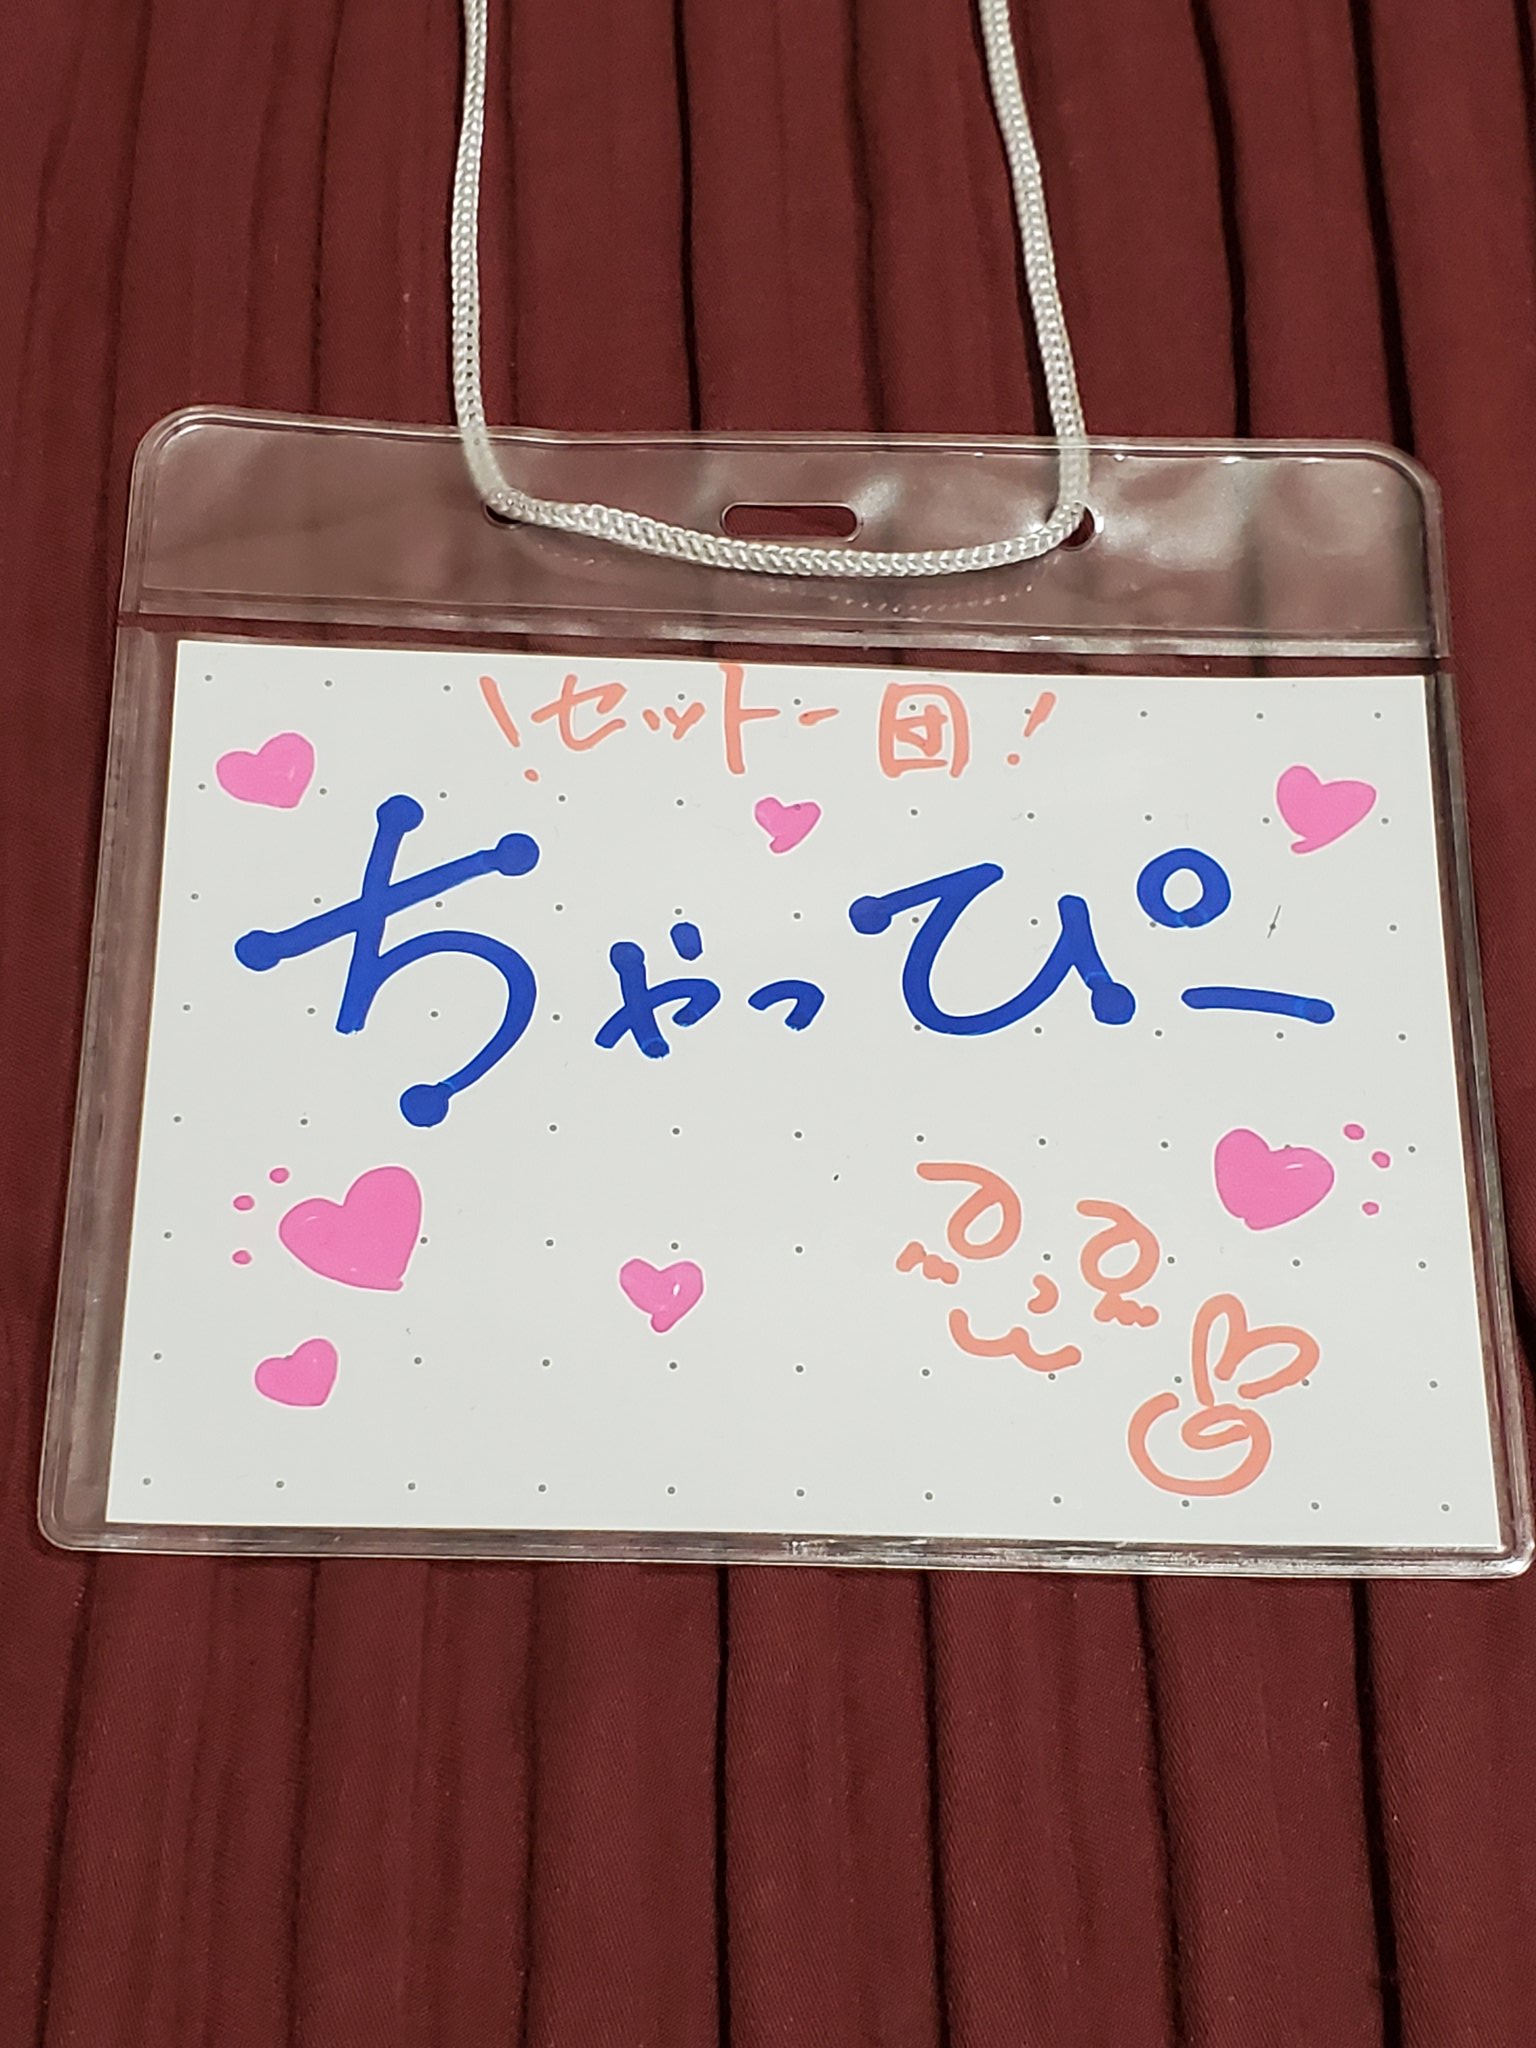 ！セットー団！
ちゃっぴー